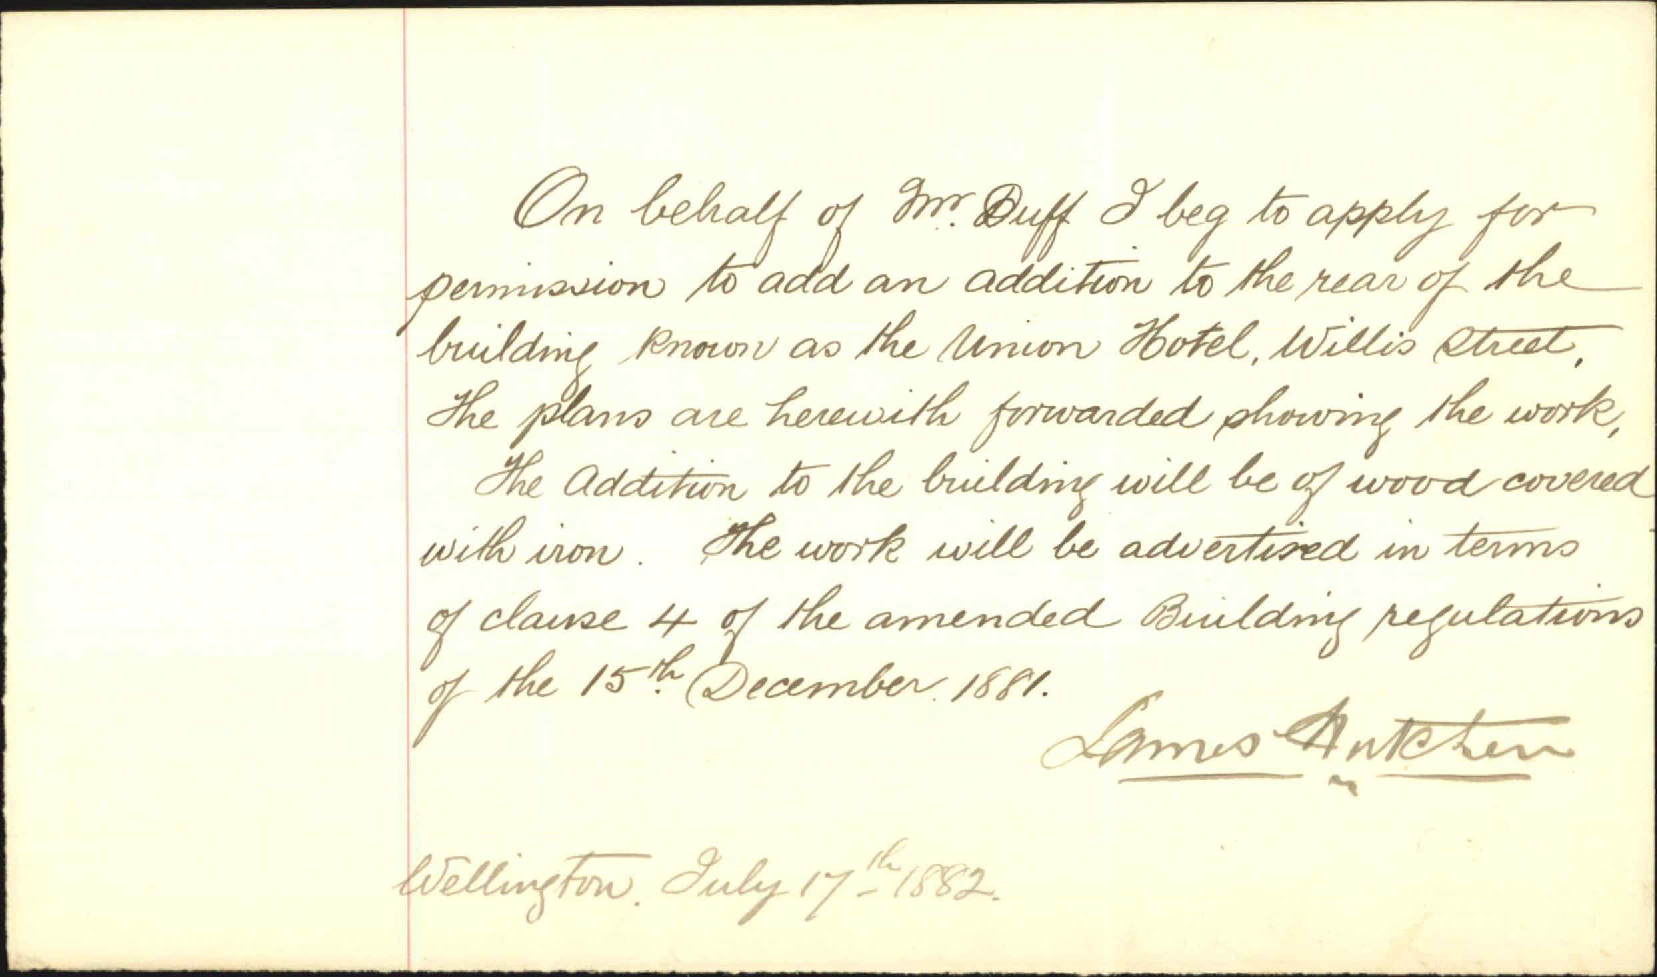 On behalf of Mr. Duff I beg to apply for
permission to add an addition to the rear of the
building known as the Union Hotel, Willis Street,
The plans are herewith forwarded showing the work,
The addition to the building will be of wood covered
with iron. The work will be advertised in terms
of clause 4 of the amended Building regulations
of the 15th December. 1881.
James Hutchen
Wellington. July 17th 1882.